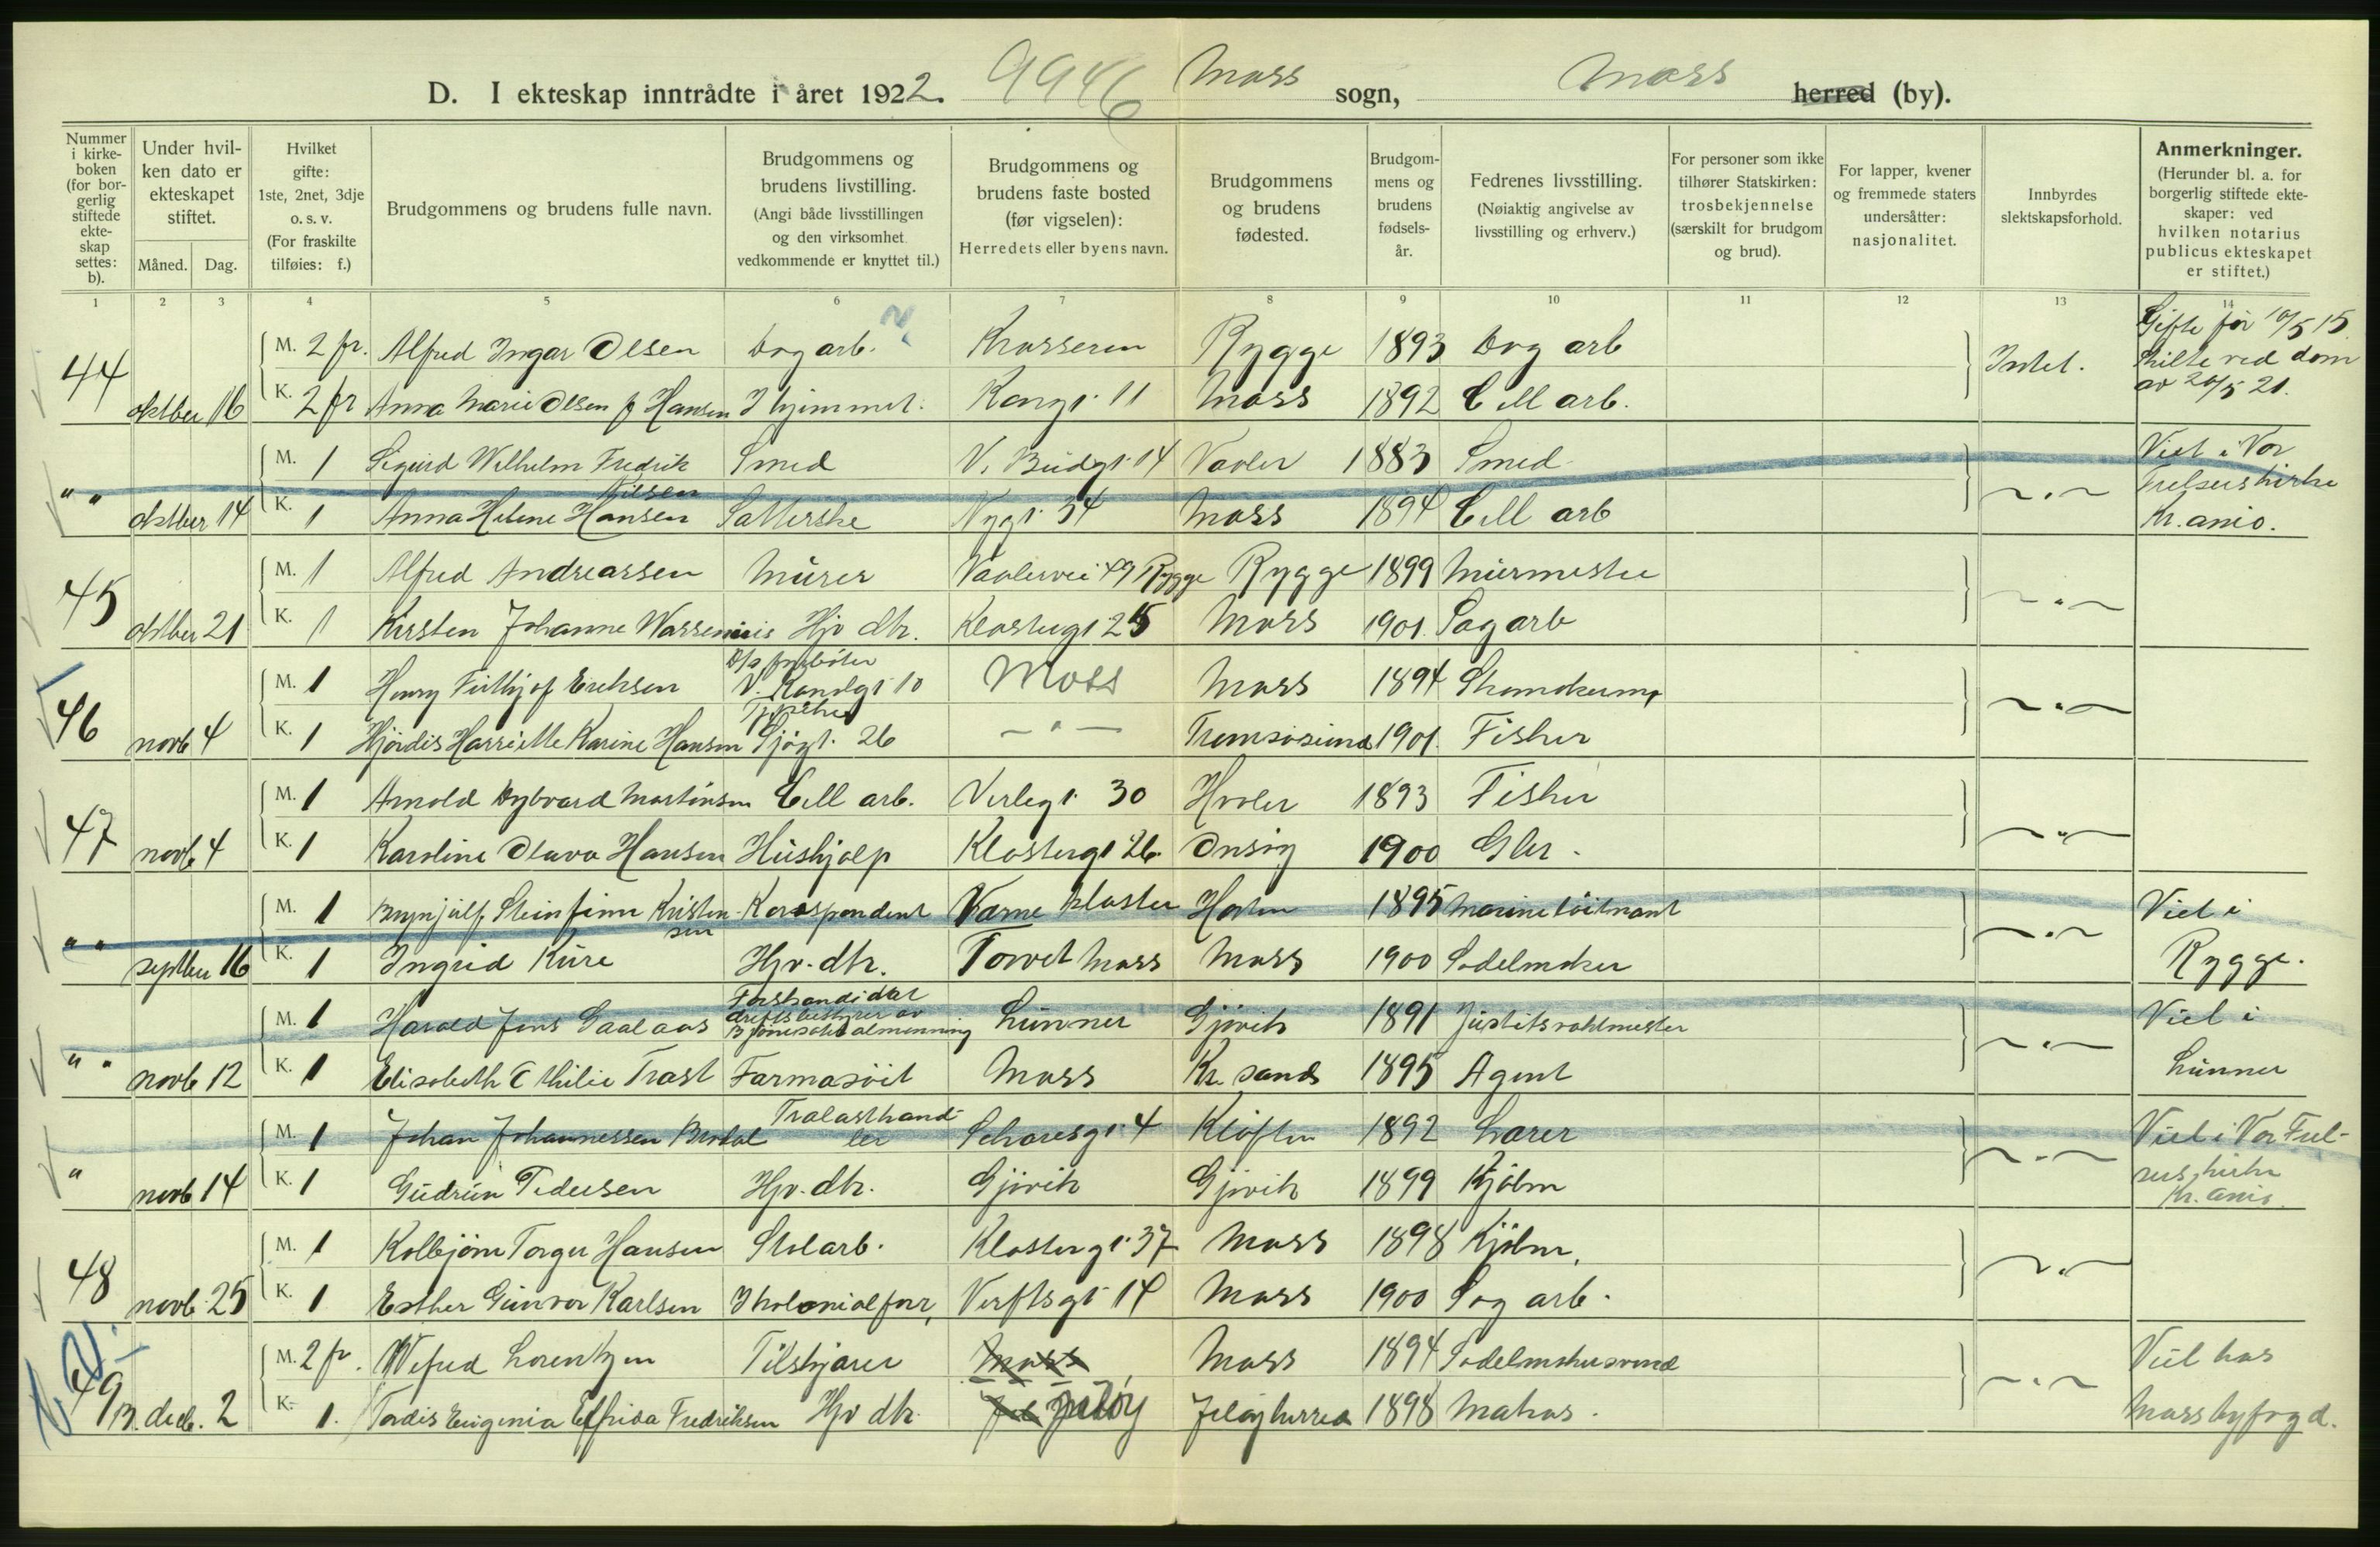 D. I ekteskap inntrådte i året 1922. 9946 Moss sogn, Moss herred (by).
Nummer i kirkeboken (for borgerlig stiftede ekteskap settes: b).
Under hvilken dato er ekteskapet stiftet.
Måned. Dag.
Hvilket gifte: 1ste, 2net, 3dje o. s. v. (For fraskilte tilføies: f.)
Brudgommens og brudens fulle navn.
Brudgommens og brudens livstilling. (Angi både livsstillingen og den virksomhet vedkommende er knyttet til.)
Brudgommens og brudens faste bosted (før vigselen): Herredets eller byens navn.
Brudgommens og brudens fødested.
Brudgommens og brudens fødsels-år.
Fedrenes livsstilling. (Nøiaktig angivelse av livsstilling og erhverv.)
For personer som ikke tilhører Statskirken: trosbekjennelse (særskilt for brudgom og brud).
For lapper, kvener og fremmede staters undersåtter: nasjonalitet.
Innbyrdes slektskapsforhold.
Anmerkninger. (Herunder bl. a. for borgerlig stiftede ekteskaper: ved hvilken notarius publicus ekteskapet er stiftet.)
1 2 3 4 5 6 7 8 9 10 11 12 13 14
44 M. 2 fr. Alfred Ingar Olsen arb. Rygge 1893 arb Intet. Gifte før 10/5 15
oktber 16 K. 2 fr Anna Marie Olsen f Hansen I hjemmet. Kongs 11 Moss 1892 Cell arb. skilte ved dom av 20/5 21.
" " M. 1 Sigurd Wilhelm Fredrik Nilsen Smed V. Budgt 14 Vaaler 1883 Smed Viet i Vor
oktber 14 K. 1 Anna Helene Hansen Nygt 34 Moss 1894 Cell arb ~ " ~ Frelsers kirke Kr. ania.
45 M. 1 Alfred Andreassen Murer Vaalervei 49 Rygge Rygge 1899 Murmester
oktber 21 K. 1 Kirsten Johanne Hjv dtr. Klostergt 25 Moss 1901 Sagarb ~ " ~
46 M. 1 Henry Frithjof Eriksen D/s fyrbøter V. Kanalgt 10 Moss Moss 1894 Skomakerm
novb 4 K. 1 Hjördis Harriette Karine Hansen Sjøgt. 26 — " — Tromsøsund 1901. Fisker ~ " ~
47 M. 1 Arnold Martinsen Cell arb. Verlegt 30 Hvaler 1893 Fisker
novb 4 K. 1 Karoline Olava Hansen Hushjelp Klostergt 26 Onsøy 1900 Gbr. ~ " ~
" " M. 1 Brynjulf Steinfinn Kristensen Korespondent Varne Kloster Horten 1895 Marineløitnant Viet i
septber 16 K. 1 Ingrid Kure Hjv. dtr. Torvet Moss Moss 1900 Sadelmaker ~ " ~ Rygge.
" " M. 1 Harald Jens Gaalaas Forstkandidat driftsbestyrer av almenning Lunner Gjøvik 1891 Viet i
novb 12 K. 1 Elisabeth Othilie Trast Farmasøit Moss Kr. sand 1895 Agent ~ " ~ Lunner
" M. 1 Johan Johannessen Trælasthandler 4 Kløften 1892 Lærer Viet i Vor Frel-
novb 14 K. 1 Gudrun Pedersen Hjv. dtr. Gjøvik Gjøvik 1899 Kjøbm ~ " ~ sers kirke Kr. ania.
48 M. 1 Kolbjørn Torger Hansen Klostergt 37 Moss 1898 Kjøbm.
novb 25 K. 1 Esther Gunvor Karlsen I kolonialforr, Verftsgt 14 Moss 1900 Sag arb. ~ " ~
49 M. 2 fr. Wifred Lorentzen Tilskjærer Moss Moss 1894 Sadelmakersvend Viet hos
B. decb. 2 K. 1. Tordis Eugenia Elfrida Fredriksen Hjv dtr. Jeløy Jeløyherred 1898 Matros. ~ " ~ Moss byfogd.